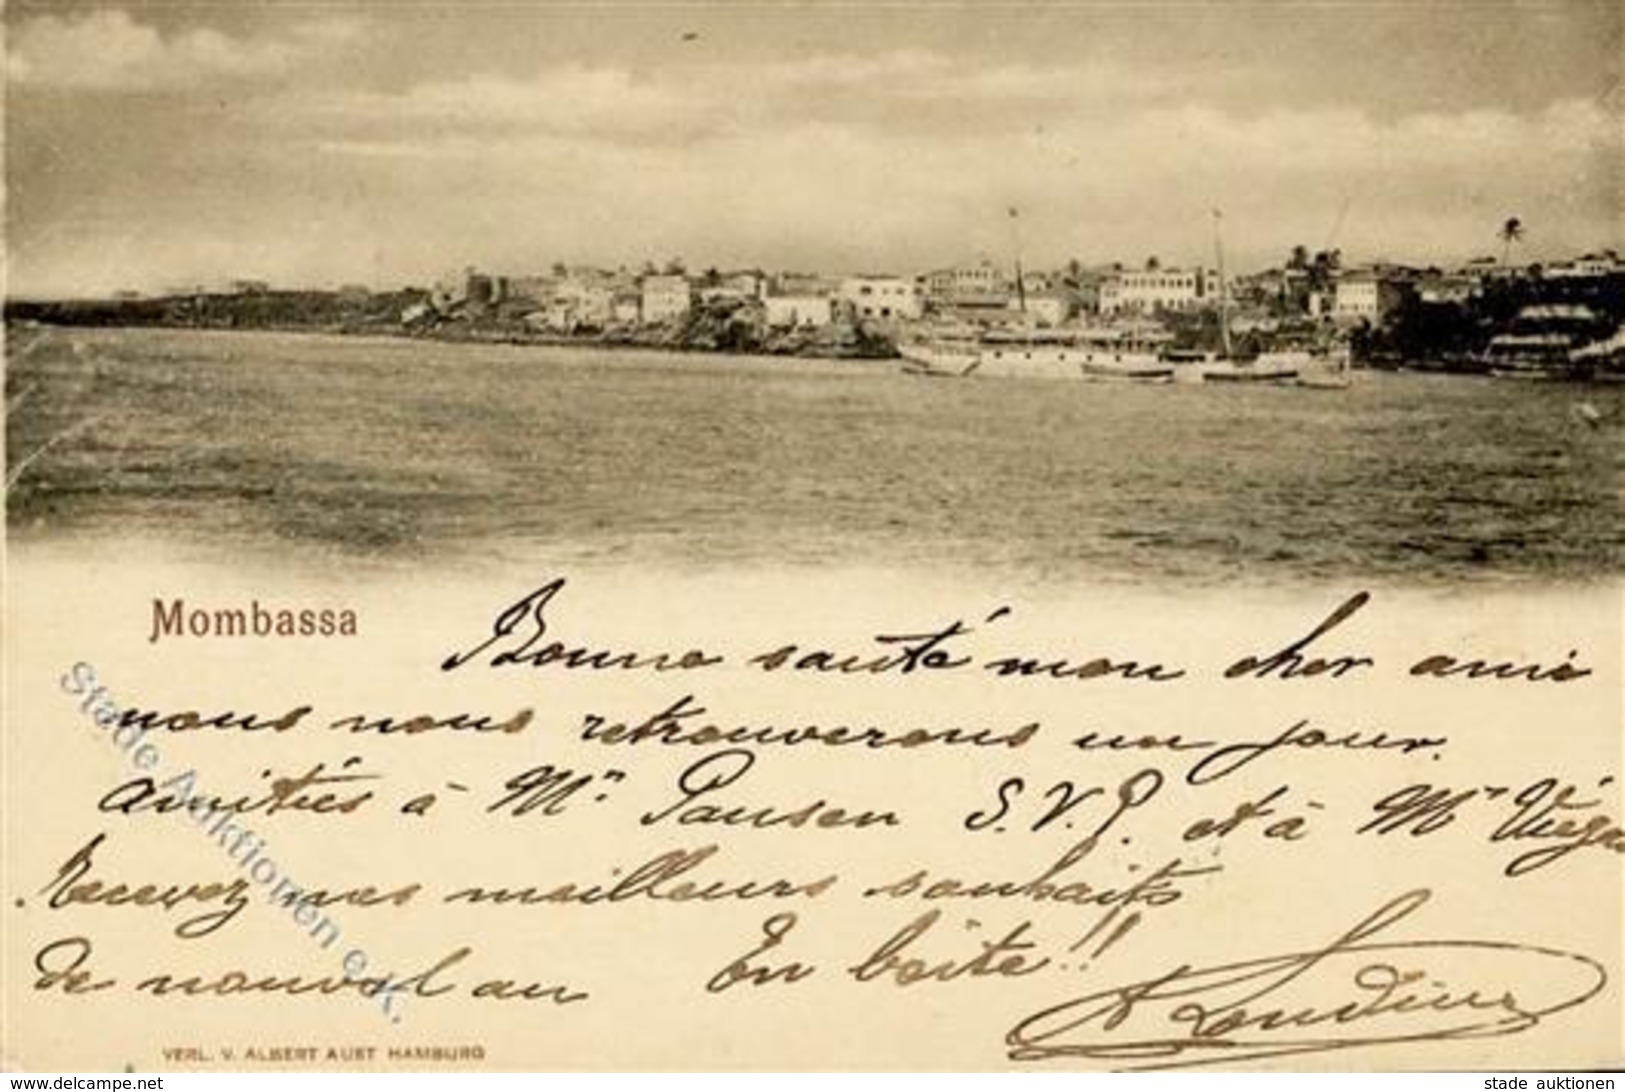 Mombassa
Bonne santé mon cher ami
nous nous retrouverons un jour.
Amitiés à Mʳ. Pausen S.V.P. et à Mʳ
Recevez mes meilleurs souhaits
de nouvel an En boîte!!
Stade Auktionen e.K.
VERL. V. ALBERT AUST HAMBURG
www.delcampe.net
stade auktionen